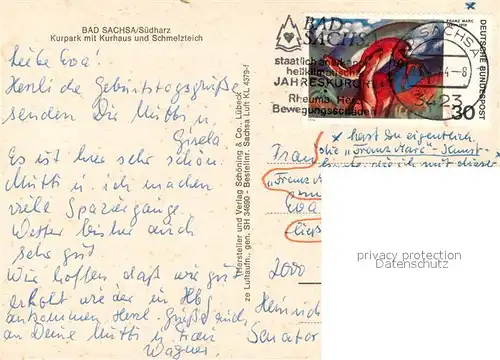 BAD SACHSA/Südharz
Kurpark mit Kurhaus und Schmelzteich
Liebe Eva!
Herzliche Geburtstagsgrüße
senden Dir Mutti u.
Gisela
Es ist hier sehr schön.
Mutti u. ich machen
viele Spaziergänge.
Wetter bisher auch
sehr gut
Wir hoffen daß wir gut
erholt wieder in Hbg
ankommen Herzl. Grüße auch
an Deine Mutti u. Frau
Wagner.
(Hersteller und Verlag Schöning & Co., Lübeck
ze Luftaufn., gen. SH 34690 - Bestellnr. Sachsa Luft KL 4379-f
BAD
SACHSA
staatlich anerkannter
heilklimatischer
JAHRESKURORT
Rheuma Herz
Bewegungsschäden
SACHSA
-8
3423
FRANZ MARC
DEUTSCHE BUNDESPOST
30
x hast Du eigentlich
die "Franz Marc"-Kunst-
mit dieser
Frau
"Franz
Eva
2000
Heinrich
Senator
privacy protection
VEIKKOS.COM